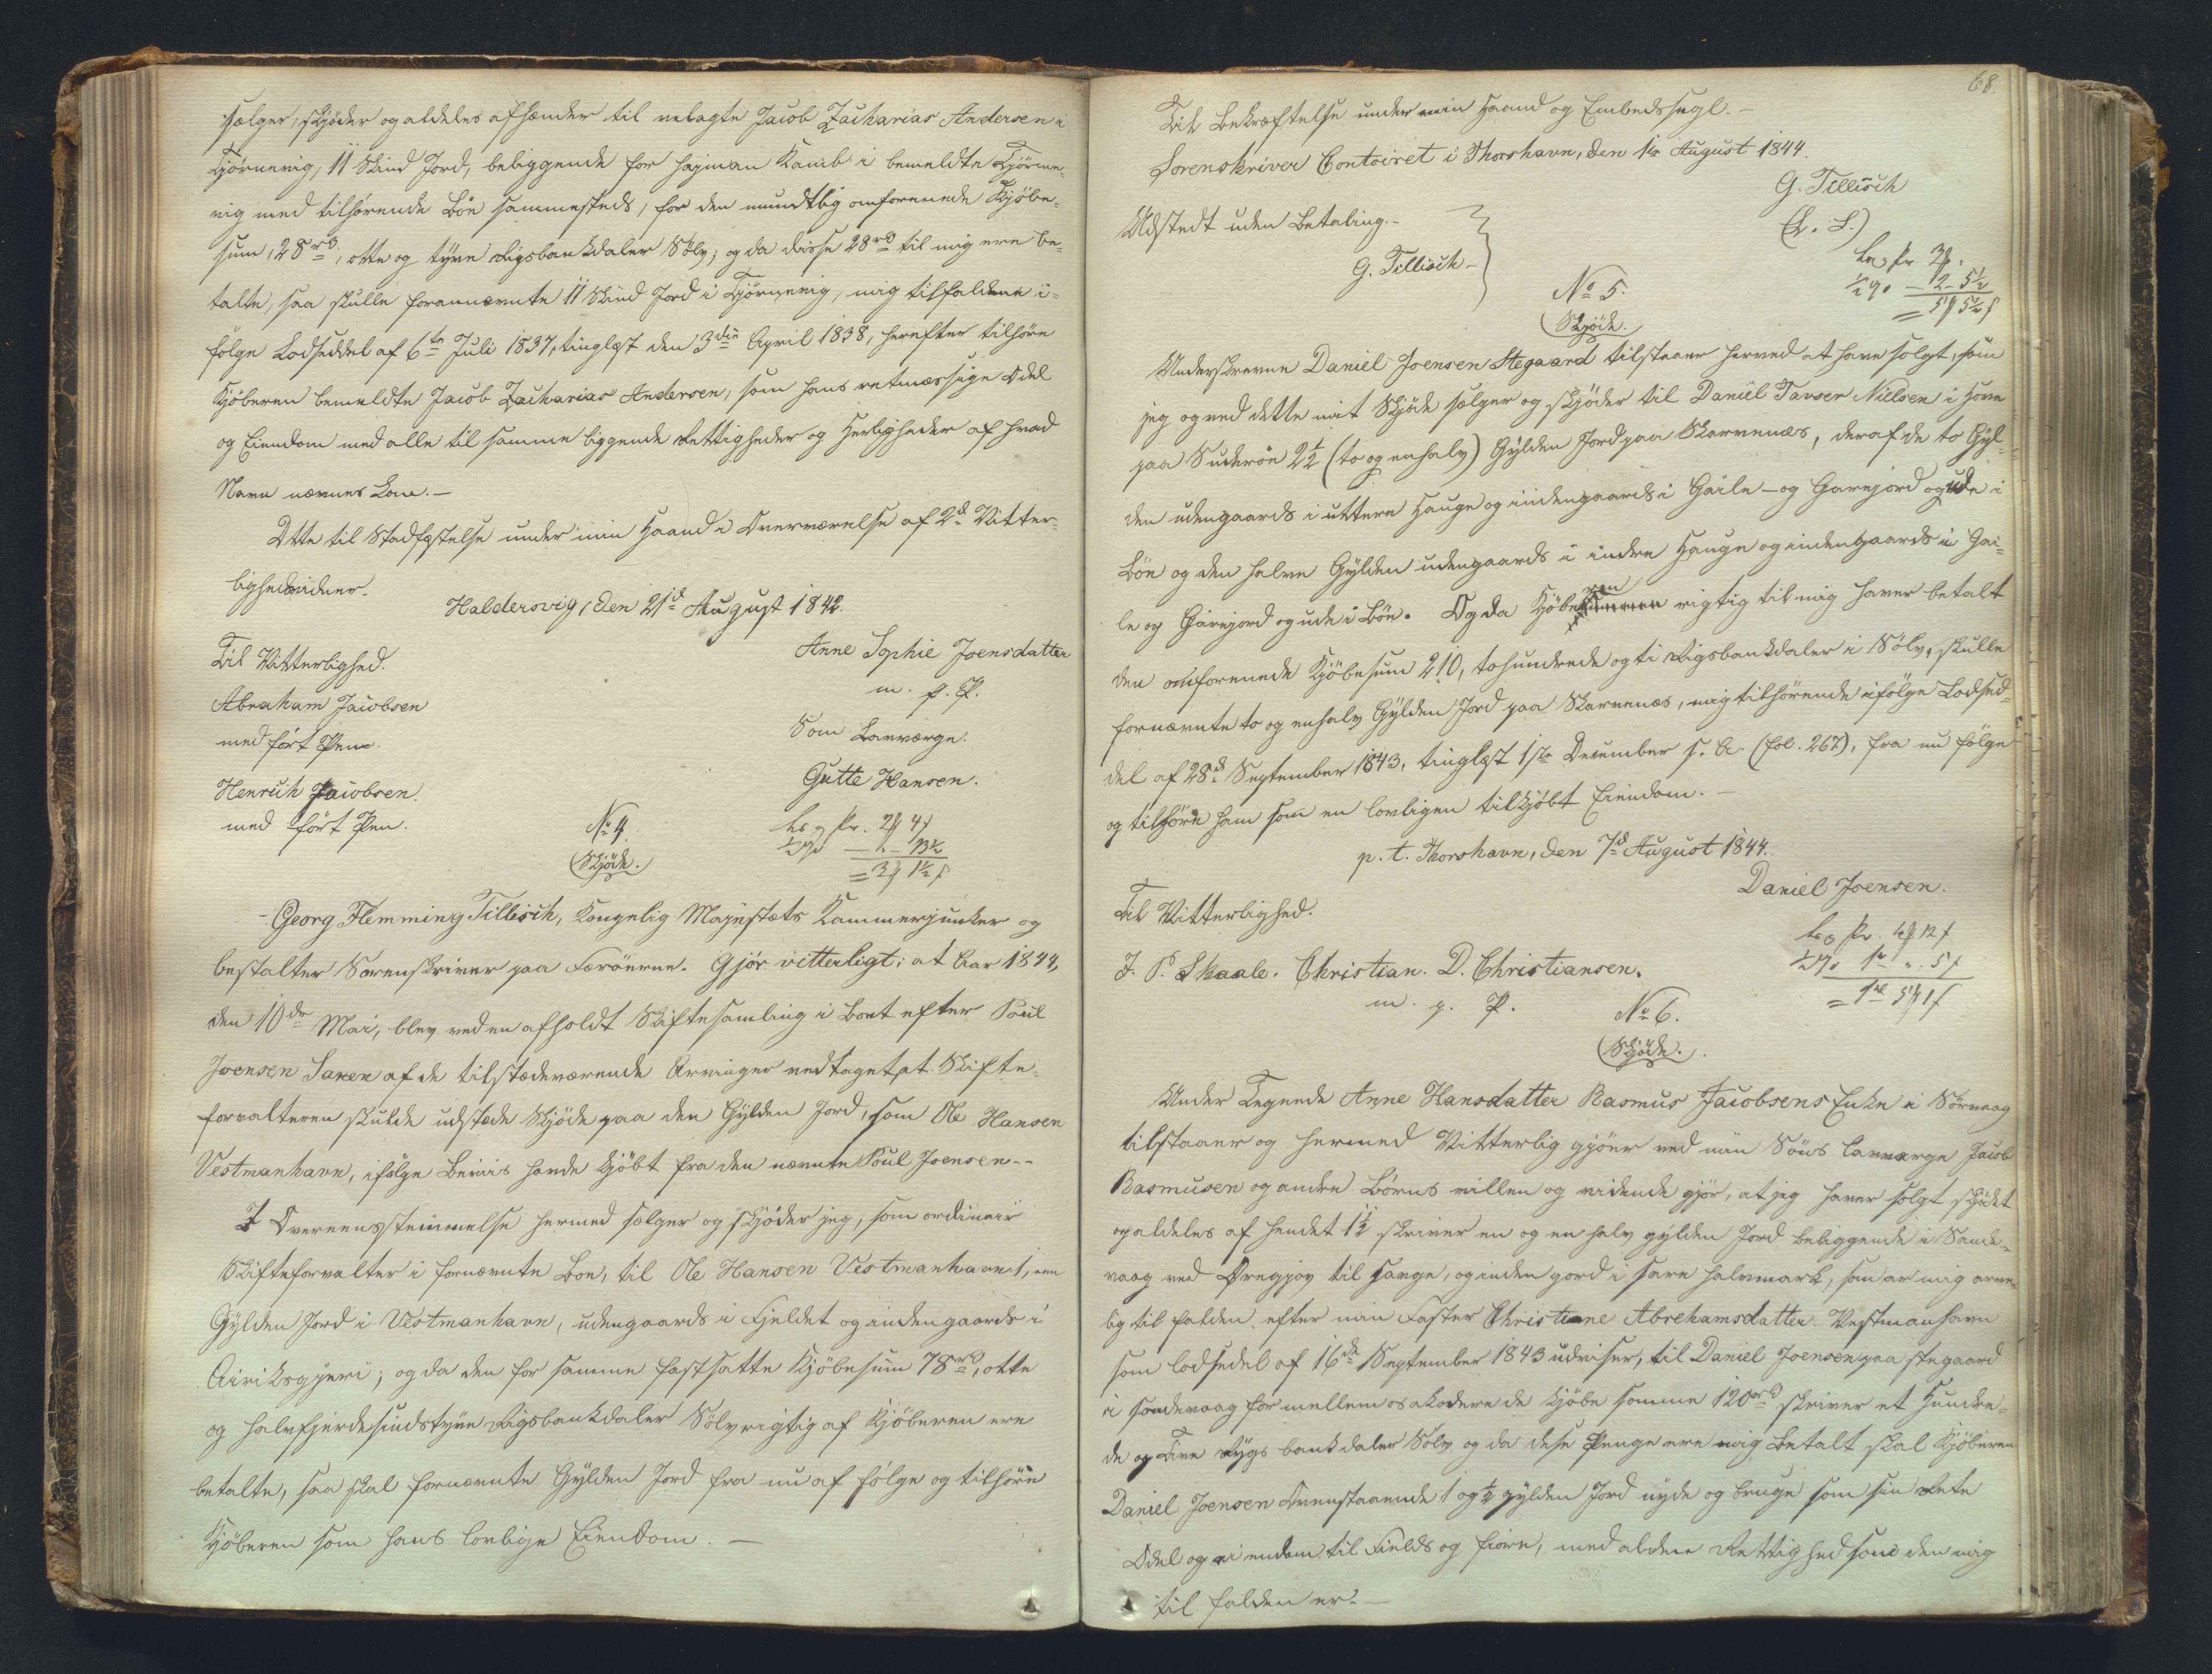 sælger, skjöder og aldeles afhænder til velagte Jacob Zacharias Andersen i
Tjörnevig, 11 Skind Jord, beliggende for hajman Kamb i bemeldte Tjörne-
vig med tilhörende Böe sammesteds, for den mundtlig omforenede Kjöbe-
sum, 28 rbd, otte og tyve Rigsbankdaler Sölv; og da disse 28 rbd til mig ere be-
talte, saa skulle forannævnte 11 Skind Jord i Tjörnevig, mig tilfaldene i-
fölge Lodseddel af 6te Juli 1837, tinglæst den 3die April 1838, herefter tilhöre
Kjöberen bemeldte Jacob Zacharias Andersen, som hans retmæssige Odel
og Eiendom med alle til samme liggende Rettigheder og Herligheder af hvad
Navn nævnes kan.-
Dette til Stadfæstelse under min Haand i Overværelse af 2de Vitter-
lighedsvidner.
Haldersvig, den 21de August 1842.
Til Vitterlighed.
Anne Sophie Joensdatter
m. f. P.
Abraham Jacobsen
med fört Pen.
Som Lavværge.
Gutte Hansen.
Henrich Jacobsen.
med fört Pen.
No 4.
(Skjöde.)
-Georg Flemming Tillisch, Kongelig Majestæts Kammerjunker og
bestalter Sorenskriver paa Færöerne. Gjör vitterligt; at Aar 1844,
den 10de Mai, blev ved en afholdt Skiftesamling i Boet efter Poul
Joensen Saxen af de tilstædeværende Arvinger vedtaget, at Skifte-
forvalteren skulde udstæde Skjöde paa den Gylden Jord, som Ole Hansen
Vestmanhavn, ifölge Beviis havde kjöbt fra den nævnte Poul Joensen.-
I Overeensstemmelse hermed sælger og skjöder jeg, som ordinair
Skifteforvalter i fornævnte Boe, til Ole Hansen Vestmanhavn 1, een
Gylden Jord i Vestmanhavn, udengaards i Fjeldet og indengaards i
Airiksgjeri; og da den for samme fastsatte Kjöbesum 78 rbd, otte
og halvfjerdesindstyve Rigsbankdaler Sölv rigtig af Kjöberen ere
betalte, saa skal fornævnte Gylden Jord fra nu af fölge og tilhöre
Kjöberen som hans lovlige Eiendom. -
68.
Til Bekræftelse under min Haand og Embedssegl.-
Sorenskriver Contoiret i Thorshavn, den 1ste August 1844.
G. Tillisch
(L. S.)
Udstedt uden Betaling.-
G. Tillisch-
No 5.
(Skjöde.)
Underskrevne Daniel Joensen Stegaard tilstaaer herved at have solgt, som
jeg og ved dette mit Skjöde sælger og skjöder til Daniel Tavsen Nielsen i Hove
paa Suderöe 2½ (to og en halv) Gylden Jord paa Skarvenæs, deraf de to Gyl-
den udengaards i uttere Hauge og indengaards i Gaile- og Garejord og ude i
Böe og den halve Gylden udengaards i indre Hauge og indengaards i Gai-
le og Garejord og ude i Böe. Og da Kjöberen rigtig til mig haver betalt
den omforenede Kjöbesum 210, tohundrede og ti Rigsbankdaler i Sölv, skulle
fornævnte to og en halv Gylden Jord paa Skarvenæs, mig tilhörende ifölge Lodsed-
del af 28de September 1843, tinglæst 1ste December s. A. (fol. 267), fra nu fölge
og tilhöre ham som en lovligen tilkjöbt Eiendom.-
p. t. Thorshavn, den 7de August 1844.
Daniel Joensen.
Til Vitterlighed.
J. P. Skaale. Christian. D. Christiansen.
m. f. P.
No 6.
(Skjöde.)
Under Tegnede Anne Hansdatter Rasmus Jacobsens Enke i Sörvaag
tilstaaer og hermed Vitterlig gjöer ved min Söns lavværge Jacob
Rasmusen og andre Börns villen og vidende gjör, at jeg haver solgt skjödet
og aldeles af hendet 1½ skriver en og en halv gylden Jord beliggende i Sande-
vaag ved Öregjov til hauge, og inden gord i fare halvmark, som ar mig arve-
lig til falden efter min Faster Christiane Abrehamsdatter Vestmanhavn
som lodsedel af 16de September 1843 udviser, til Daniel Joensen paa stegaard
i sandevaag for mellem os akoderede kjöbe somme 120 rbd skriver et Hundre-
de og Tive Rygs bankdaler Sölv og da dese Penge ere mig Betalt skal Kjöberen
Daniel Joensen Ovenstaaende 1 og ½ gylden Jord nyde og bruge som sin Rete
Odel og ei endom til Fields og fiöre, med aldene Rettighed som den mig
til falden er.-